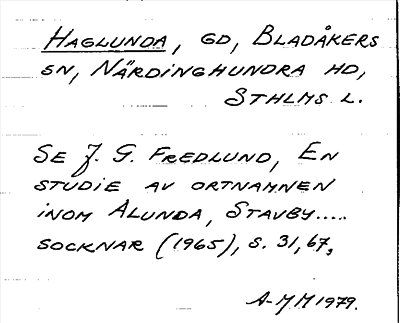 HAGLUNDA, GD, BLADÅKERS
SN, NÄRDINGHUNDRA HD,
STHLMS L.
SE J. G. FREDLUND, EN
STUDIE AV ORTNAMNEN
INOM ALUNDA, STAVBY.....
SOCKNAR (1965), S. 31, 67,
A-M M 1979.